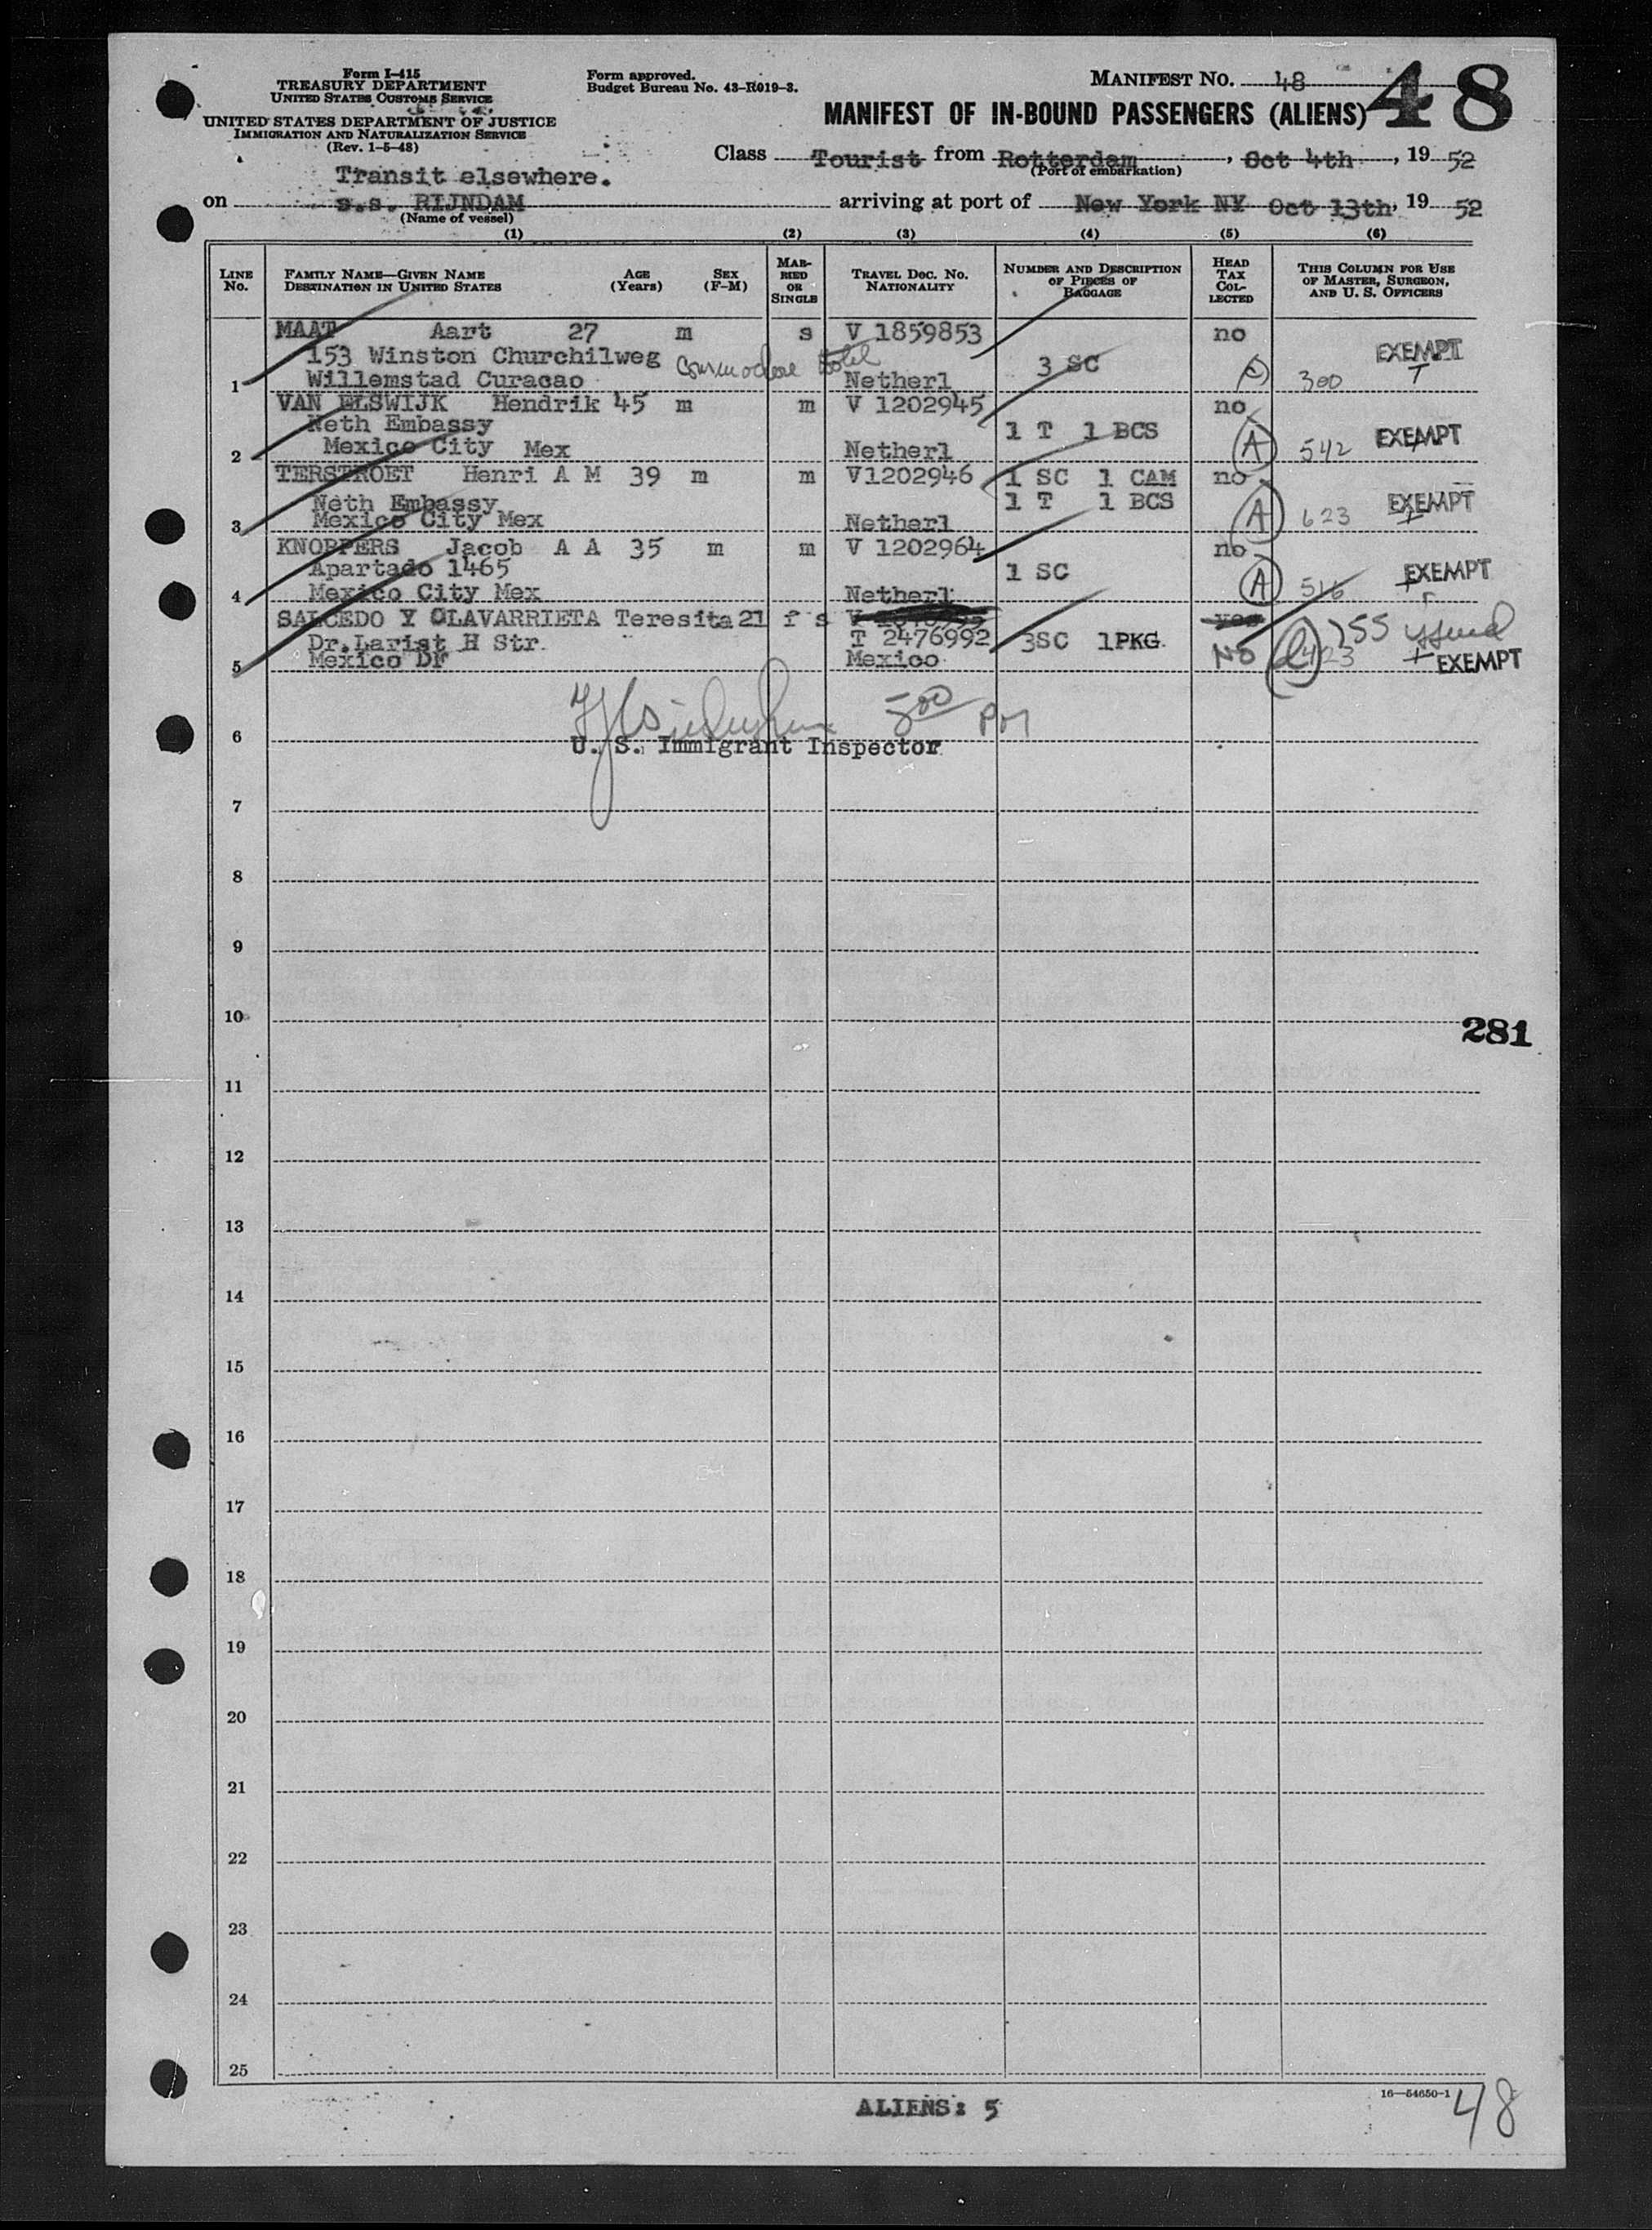 Form I-415
TREASURY DEPARTMENT
UNITED STATES CUSTOMS SERVICE
UNITED STATES DEPARTMENT OF JUSTICE
IMMIGRATION AND NATURALIZATION SERVICE
(Rev. 1-5-48)
Form approved.
Budget Bureau No. 43-R019-3.
MANIFEST No. 48
48
MANIFEST OF IN-BOUND PASSENGERS (ALIENS)
Class Tourist from Rotterdam, Oct 4th, 19 52
(Port of embarkation)
Transit elsewhere.
on s.s. RIJNDAM arriving at port of New York NY Oct 13th, 19 52
(Name of vessel)
(1) (2) (3) (4) (5) (6)
LINE No. FAMILY NAME—GIVEN NAME DESTINATION IN UNITED STATES AGE (Years) SEX (F-M) MARRIED OR SINGLE TRAVEL DOC. NO. NATIONALITY NUMBER AND DESCRIPTION OF PIECES OF BAGGAGE HEAD TAX COLLECTED THIS COLUMN FOR USE OF MASTER, SURGEON, AND U. S. OFFICERS
MAAT Aart 27 m s V 1859853 no
153 Winston Churchilweg Commodore Hotel 3 SC EXEMPT
1 Willemstad Curacao Netherl 300 T
VAN ELSWIJK Hendrik 45 m m V 1202945 no
Neth Embassy 1 T 1 BCS
2 Mexico City Mex Netherl A 542 EXEMPT
TERSTROET Henri A M 39 m m V1202946 1 SC 1 CAM no
Neth Embassy 1 T 1 BCS
3 Mexico City Mex Netherl A 623 EXEMPT
KNOPPERS Jacob A A 35 m m V 1202964 no
Apartado 1465 1 SC
4 Mexico City Mex Netherl A 516 EXEMPT
SALCEDO Y OLAVARRIETA Teresita 21 f s V yes
Dr.Larist H Str. T 2476992 3SC 1PKG. NO 423
5 Mexico DF Mexico EXEMPT
500 PM
U. S. Immigrant Inspector
6
7
8
9
10
281
11
12
13
14
15
16
17
18
19
20
21
22
23
24
25
16—54650-1
ALIENS: 5
48